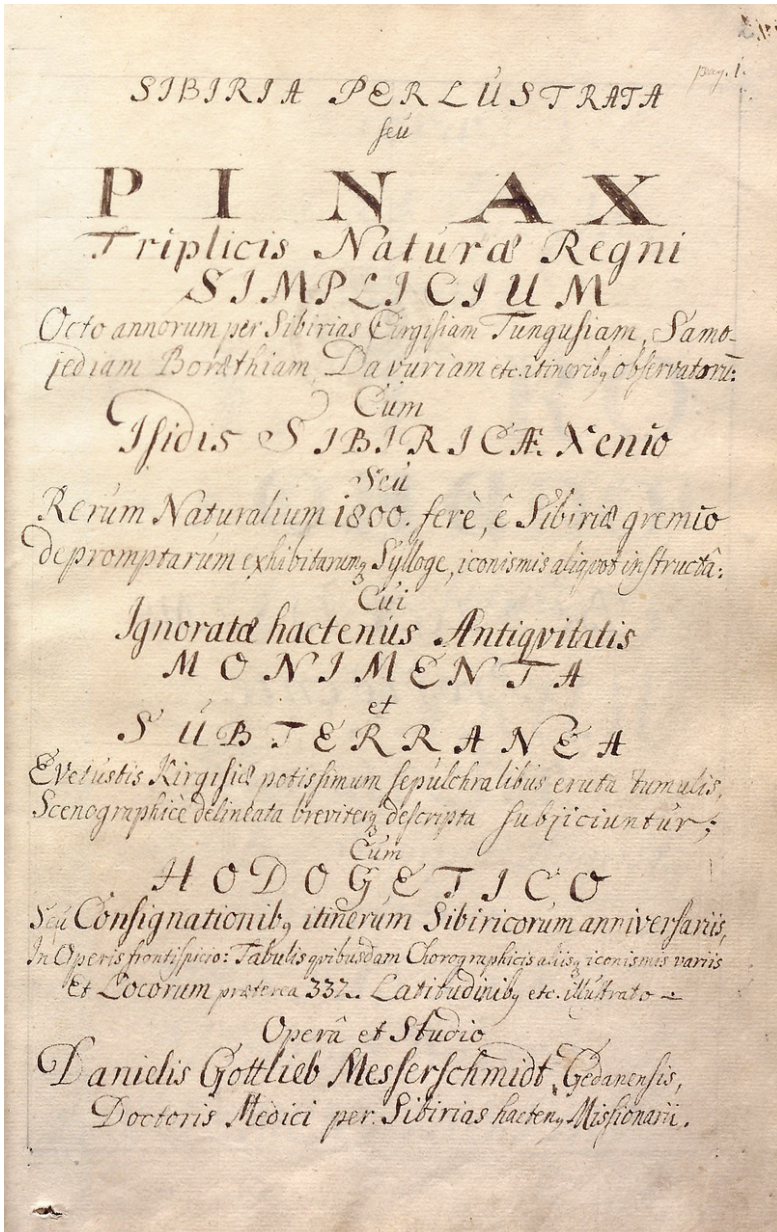 pag. 1.
SIBIRIA PERLUSTRATA
seu
PINAX
Triplicis Naturæ Regni
SIMPLICIUM
Octo annorum per Sibirias Cirgisiam Tungusiam, Samo-
jediam Boræthiam, Davuriam etc. itineribꝫ observatorū:
Cum
Isidis SIBIRICÆ Xenio
Seu
Rerum Naturalium 1800. ferè, ê Sibiriæ gremio
depromptarum exhibitarumqꝫ Sylloge, iconismis aliqvot instructâ:
Cui
Ignoratæ hactenus Antiqvitatis
MONIMENTA
et
SUBTERRANEA
E vetustis Kirgisiæ potissimum sepulchralibus eruta tumulis,
Scenographicè delineata breviterqꝫ descripta subjiciuntur;
Cum
HODOGETICO
Seu Consignationibꝫ itinerum Sibiricorum anniversariis,
In Operis frontispicio: Tabulis qvibusdam Chorographicis aliisqꝫ iconismis variis
Et Locorum præterea 332. Latitudinibꝫ etc. illustrato
Operâ et Studio
Danielis Gottlieb Messerschmidt, Gedanensis,
Doctoris Medici per Sibirias hactenꝫ Missionarii.